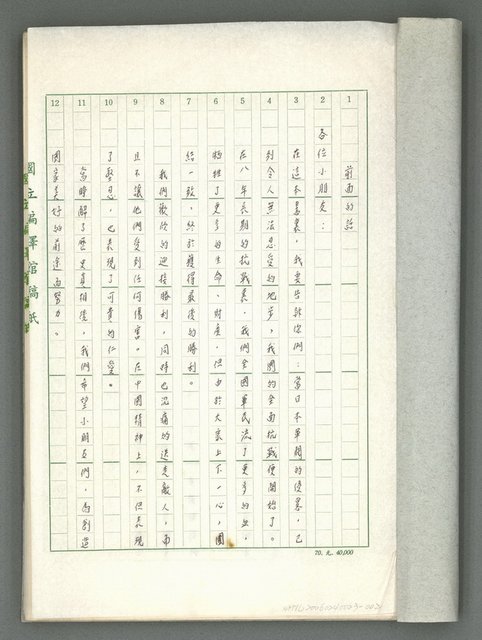 1 前面的話
2 各位小朋友：
3 在這本書裏，我要告訴你們：當日本軍閥的侵略，已
4 到令人無法忍受的地步，我國的全面抗戰便開始了。
5 在八年長期的抗戰裏，我們全國軍民流了更多的血，
6 犧牲了更多的生命、財產，但由於大家上下一心，團
7 結一致，終於獲得最後的勝利。
8 我們歡欣的迎接勝利，同時也沉痛的送走敵人，而
9 且不讓他們受到任何傷害。在中國精神上，不但表現
10 了堅忍，也表現了可貴的仁愛。
11 當瞭解了歷史真相後，我們希望小朋友們，為創造
12 國家美好的前途而努力。
國立編譯館稿紙
70. 元. 40,000